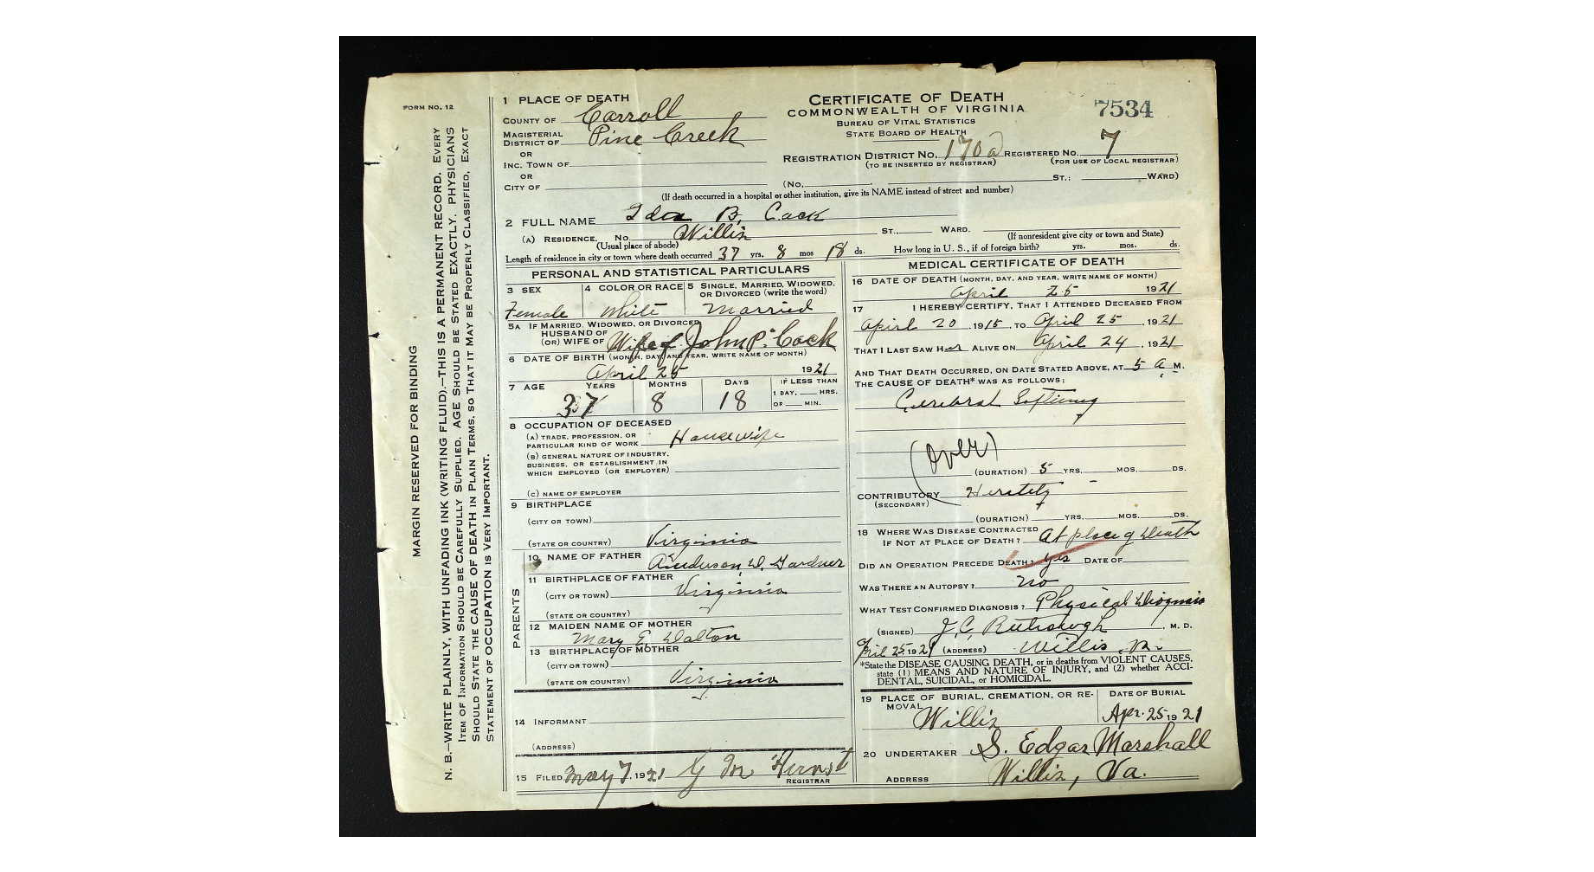 FORM NO. 12
MARGIN RESERVED FOR BINDING
N. B.—WRITE PLAINLY, WITH UNFADING INK (WRITING FLUID).—THIS IS A PERMANENT RECORD. EVERY
ITEM OF INFORMATION SHOULD BE CAREFULLY SUPPLIED. AGE SHOULD BE STATED EXACTLY. PHYSICIANS
SHOULD STATE THE CAUSE OF DEATH IN PLAIN TERMS, SO THAT IT MAY BE PROPERLY CLASSIFIED, EXACT
STATEMENT OF OCCUPATION IS VERY IMPORTANT.
CERTIFICATE OF DEATH
COMMONWEALTH OF VIRGINIA
BUREAU OF VITAL STATISTICS
STATE BOARD OF HEALTH
7534
1 PLACE OF DEATH
COUNTY OF Carroll
MAGISTERIAL DISTRICT OF Pine Creek
OR
INC. TOWN OF
OR
CITY OF
REGISTRATION DISTRICT NO. 170a REGISTERED NO. 7
(TO BE INSERTED BY REGISTRAR) (FOR USE OF LOCAL REGISTRAR)
(No. ST.; WARD)
(If death occurred in a hospital or other institution, give its NAME instead of street and number)
2 FULL NAME Ida B. Cock
(A) RESIDENCE, No. Willis ST., WARD.
(Usual place of abode) (If nonresident give city or town and State)
Length of residence in city or town where death occurred 37 yrs. 8 mos 18 ds. How long in U. S., if of foreign birth? yrs. mos. ds.
PERSONAL AND STATISTICAL PARTICULARS
3 SEX
Female
4 COLOR OR RACE
White
5 SINGLE, MARRIED, WIDOWED, OR DIVORCED (write the word)
Married
5A IF MARRIED, WIDOWED, OR DIVORCED
HUSBAND OF
(OR) WIFE OF Wife of John P. Cock
6 DATE OF BIRTH (MONTH, DAY, AND YEAR, WRITE NAME OF MONTH)
April 25 1921
7 AGE YEARS MONTHS DAYS IF LESS THAN
1 DAY, HRS.
OR MIN.
37 8 18
8 OCCUPATION OF DECEASED
(A) TRADE, PROFESSION, OR
PARTICULAR KIND OF WORK Housewife
(B) GENERAL NATURE OF INDUSTRY,
BUSINESS, OR ESTABLISHMENT IN
WHICH EMPLOYED (OR EMPLOYER)
(C) NAME OF EMPLOYER
9 BIRTHPLACE
(CITY OR TOWN)
(STATE OR COUNTRY) Virginia
PARENTS
10 NAME OF FATHER Anderson D. Gardner
11 BIRTHPLACE OF FATHER
(CITY OR TOWN) Virginia
(STATE OR COUNTRY)
12 MAIDEN NAME OF MOTHER
Mary E. Dalton
13 BIRTHPLACE OF MOTHER
(CITY OR TOWN)
(STATE OR COUNTRY) Virginia
14 INFORMANT
(ADDRESS)
15 FILED May 7, 1921 G M
REGISTRAR
MEDICAL CERTIFICATE OF DEATH
16 DATE OF DEATH (MONTH, DAY, AND YEAR, WRITE NAME OF MONTH)
April 25 1921
17 I HEREBY CERTIFY, THAT I ATTENDED DECEASED FROM
April 20, 1915, TO April 25, 1921
THAT I LAST SAW Her ALIVE ON April 24, 1921
AND THAT DEATH OCCURRED, ON DATE STATED ABOVE, AT 5 A M.
THE CAUSE OF DEATH* WAS AS FOLLOWS:
Cerebral Softening
(Over)
(DURATION) 5 YRS. MOS. DS.
CONTRIBUTORY
(SECONDARY)
(DURATION) YRS. MOS. DS.
18 WHERE WAS DISEASE CONTRACTED
IF NOT AT PLACE OF DEATH? At place of death
DID AN OPERATION PRECEDE DEATH? Yes DATE OF
WAS THERE AN AUTOPSY? No
WHAT TEST CONFIRMED DIAGNOSIS? Physical Diognosis
(SIGNED) J. C. M. D.
April 25 1921 (ADDRESS) Willis, Va.
*State the DISEASE CAUSING DEATH, or in deaths from VIOLENT CAUSES,
state (1) MEANS AND NATURE OF INJURY, and (2) whether ACCI-
DENTAL, SUICIDAL, or HOMICIDAL.
19 PLACE OF BURIAL, CREMATION, OR RE-
MOVAL Willis
DATE OF BURIAL
Apr. 25 1921
20 UNDERTAKER S. Edgar Marshall
ADDRESS Willis, Va.